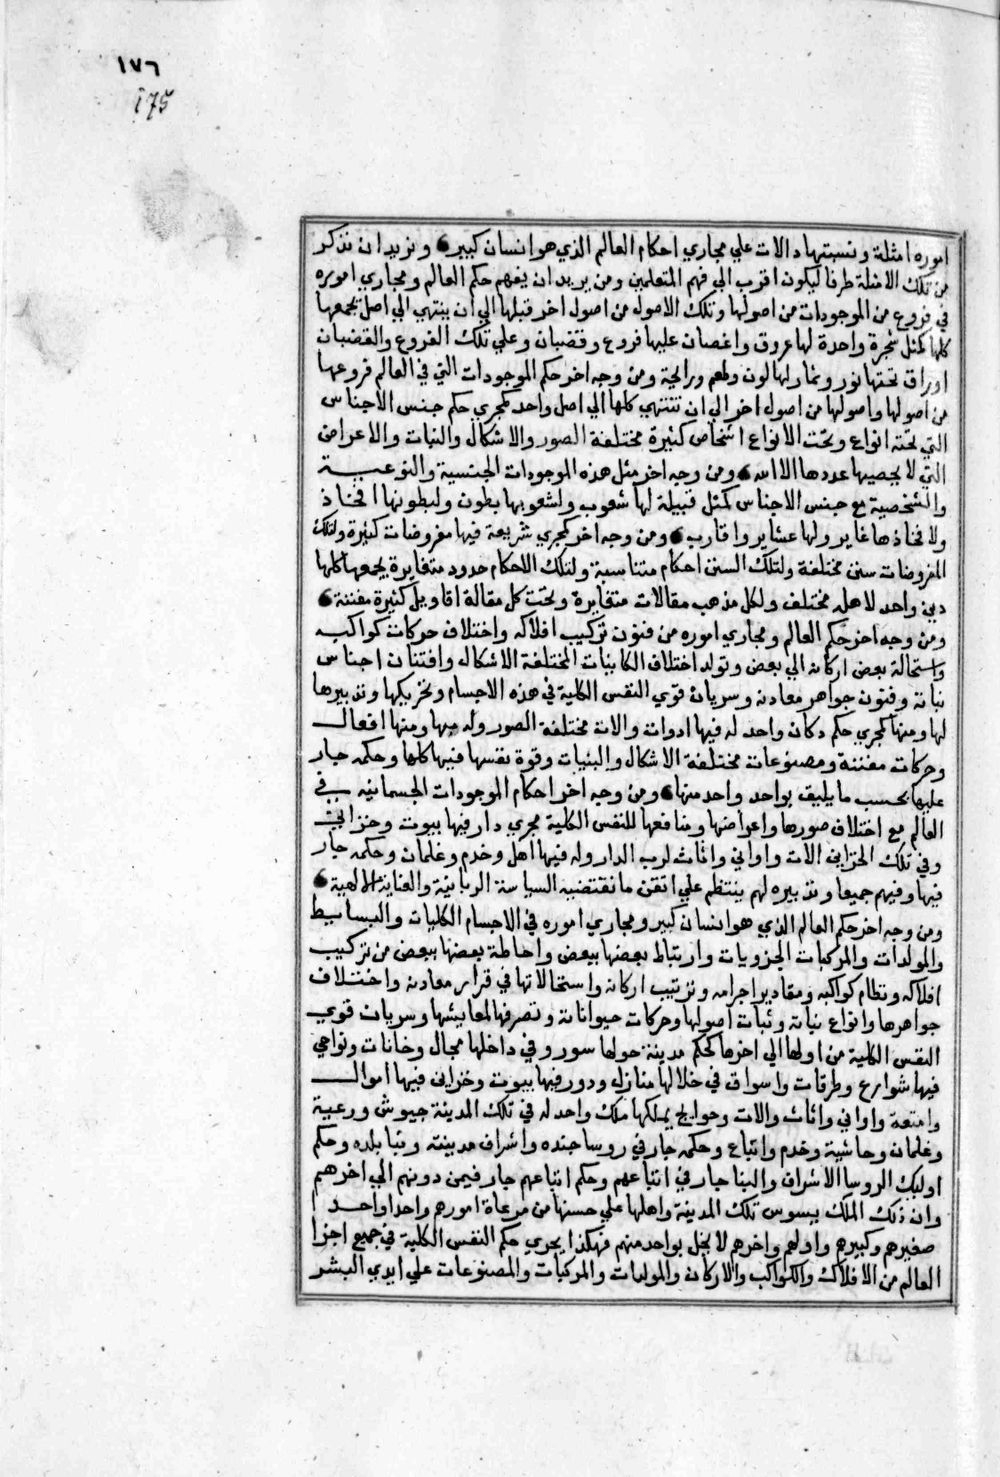 ١٧٦
175
اموره امثلة ونسبتها دالات علي مجاري احكام العالم الذي هو انسان كبير ونريد ان نذكر
من تلك الامثلة طرفا ليكون اقرب الي فهم المتعلمين ومن يريد ان يفهم حكم العالم ومجاري اموره
في فروع من الموجودات من اصولها وتلك الاصول من اصول اخر قبلها الي ان ينتهي الي اصل يجمعها
كلها كمثل شجرة واحدة لها عروق واغصان عليها فروع وقضبان وعلي تلك الفروع والقضبان
اوراق تحتها نور وثمار لها لون وطعم ورايحة ومن وجه اخر حكم الموجودات التي في العالم فروعها
من اصولها واصولها من اصول اخر الي ان تنتهي كلها الي اصل واحد كمجري حكم جنس الاجناس
التي تحته انواع وتحت الانواع اشخاص كثيرة مختلفة الصور والاشكال والنبات والاعراض
التي لا يحصيها عددها الا الله ومن وجه اخر مثل هذه الموجودات الجنسية والنوعيــة
والشخصية مع جنس الاجناس كمثل قبيلة لها شعوب ولشعوبها بطون ولبطونها افخاذ
ولافخاذها عماير ولها عشاير واقارب ومن وجه اخر كمجري شريعة فيها مفروضات كثيرة ولتلك
المفروضات سنن مختلفة ولتلك السنن احكام متناسبة ولتلك الاحكام حدود متغايرة يجمعها كلها
دين واحد لاهله مختلف ولكل مذهب مقالات متغايرة وتحت كل مقالة اقاويل كثيرة مفننة
ومن وجه اخر حكم العالم ومجاري اموره من فنون تركيب افلاكه واختلاف حركات كواكبه
واستحالة بعض اركانه الي بعض وتولد اختلاف الكاينات المختلفة الاشكال وافتنان اجناس
نباته وفنون جواهر معادنه وسريان قوي النفس الكلية في هذه الاجسام وتحريكها وتدبيرها
لها ومنها كمجري حكم دكان واحد له فيها ادوات والات مختلفة الصور وله بها ومنها افعال
وحركات مفننة ومصنوعات مختلفة الاشكال والبنيات وقوة نفسها فيها كلها وحكمه جار
عليها بحسب ما يليق بواحد واحد منها ومن وجه اخر احكام الموجودات الجسمانيه في
العالم مع اختلاف صورها واعراضها ومنافعها للنفس الكلية مجري دار فيها بيوت وخزاين
وفي تلك الخزاين الات واواني واثاث لرب الدار وله فيها اهل وخدم وغلمان وحكمه جار
فيها وفيهم جميعا وتدبيره لهم ينتظم علي اتقن ما تقتضيه السياسة الربانية والعناية الالهية
ومن وجه اخر حكم العالم الذي هو انسان كبير ومجاري اموره في الاجسام الكليات والبسايط
والمولدات والمركبات الجزويات وارتباط بعضها ببعض واحاطة بعضها ببعض من تركيب
افلاكه ونظام كواكبه ومقادير اجرامه وترتيب اركانه واستحالاتها في قرار معادنه واختلاف
جواهرها وانواع نباته وثبات اصولها وحركات حيواناته وتصرفها لمعايشها وسريان قوي
النفس الكلية من اولها الي اخرها كحكم مدينة حولها سور وفي داخلها مجال وخانات ونواحي
فيها شوارع وطرقات واسواق في خلالها منازل ودور فيها بيوت وخزاين فيها اموال
وامتعة واواني واثاث والات وحوايج يملكها ملك واحد له في تلك المدينة جيوش ورعية
وغلمان وحاشية وخدم واتباع وحكمه جار في روسا جنده واشراف مدينته وتنا بلده وحكم
اوليك الروسا الاشراف والتنا جار في اتباعهم وحكم اتباعهم جار فيمن دونهم الي اخرهم
وان ذلك الملك يسوس تلك المدينة واهلها علي حسنها من مرعاة امورهم واحدا واحد
صغيرهم وكبيرهم واولهم واخرهم لا يخل بواحد منهم فهكذا يجري حكم النفس الكلية في جميع اجزا
العالم من الافلاك والكواكب والاركان والمولدات والمركبات والمصنوعات علي ايدي البشر